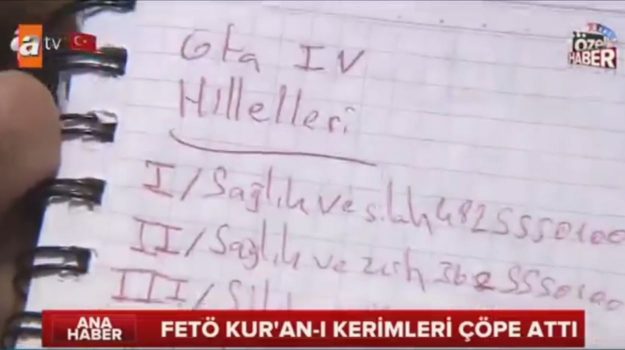 a tv
ÖZEL
HABER
Gta IV
Hılelleri
I/Sağlık ve silah 482 555 0100
II/Sağlık ve zırh 362 555 0100
III/
ANA
HABER
FETÖ KUR'AN-I KERİMLERİ ÇÖPE ATTI